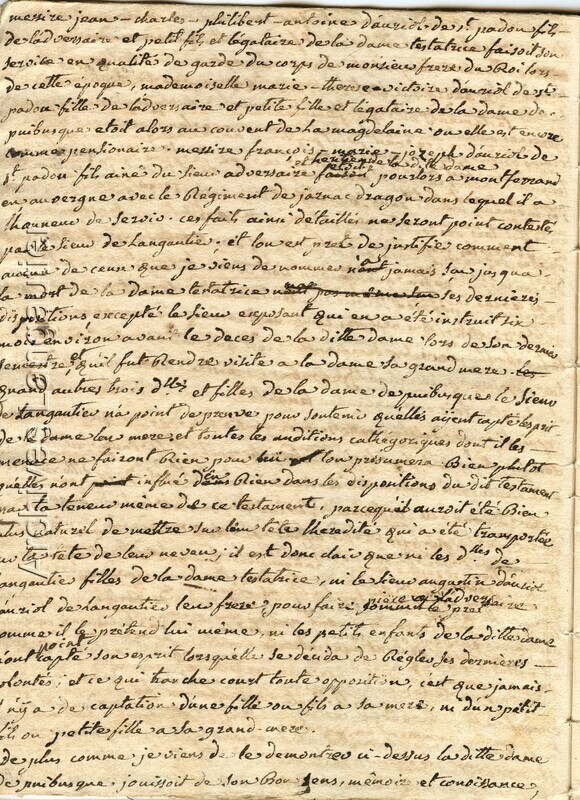 messire jean-charles-philibert-antoine dauriol de st padon fils
de ladversaire et petit fils et légataire de la dame testatrice faisoit son
service en qualité de garde du corps de monsieur frere du Roi lors
de cette époque, mademoiselle marie-therese victoire dauriol de st
padon fille de ladversaire et petite fille et légataire de la dame de
puibusque etoit alors au couvent de la magdelaine ou elle est encore
comme pensionaire. messire françois-marie-joseph dauriol de
st padon fils ainé du sieur adversaire pour lors a montferrand
en auvergne avec le Régiment de jarnac dragon dans lequel il a
lhonneur de servir. ces faits ainsi détaillés ne seront point contestés
par le sieur de langautier. et lon est pret de justifier comment
aucun de ceux que je viens de nommer n'a jamais su jusqua
la mort de la dame testatrice ses dernieres
dispositions excepté le sieur exposant qui en a été instruit six
mois environ avant le deces de la ditte dame lors de son dernier
semestre et quil fut Rendre visite a la dame sa grand mere.
quand autres trois dlles et filles de la dame de puibusque le sieur
de langautier na point de preuve pour soutenir quelles aijent capté lesprit
de la dame leur mere et toutes les auditions cathégoriques dont il les
menace ne fairont Rien pour lui lon présumera Bien plutot
quelles nont influé en Rien dans les dispositions du dit testament
par la teneur même de ce testament, parcequil auroit été Bien
plus naturel de mettre sur leur tete lheredité qui a été transportée
sur la tete de leur neveu; il est donc clair que ni les dlles de
langautier filles de la dame testatrice, ni le sieur augustin dauriol
dauriol de langautier leur frere, pour faire
comme il le prétend lui même, ni les petits enfants de la ditte dame
nont point capté son esprit lorsquelle se décida de Régler ses dernieres
volontés; et ce qui tranche court toute opposition, cest que jamais
il ny a de captation dune fille ou fils a sa mere, ni dun petit
fils ou petite fille a sa grand-mere.
de plus comme je viens de le demontrer ci-dessus la ditte dame
de puibusque jouissoit de son Bon sens, mémoire et conoissance,
Archives Lengualic